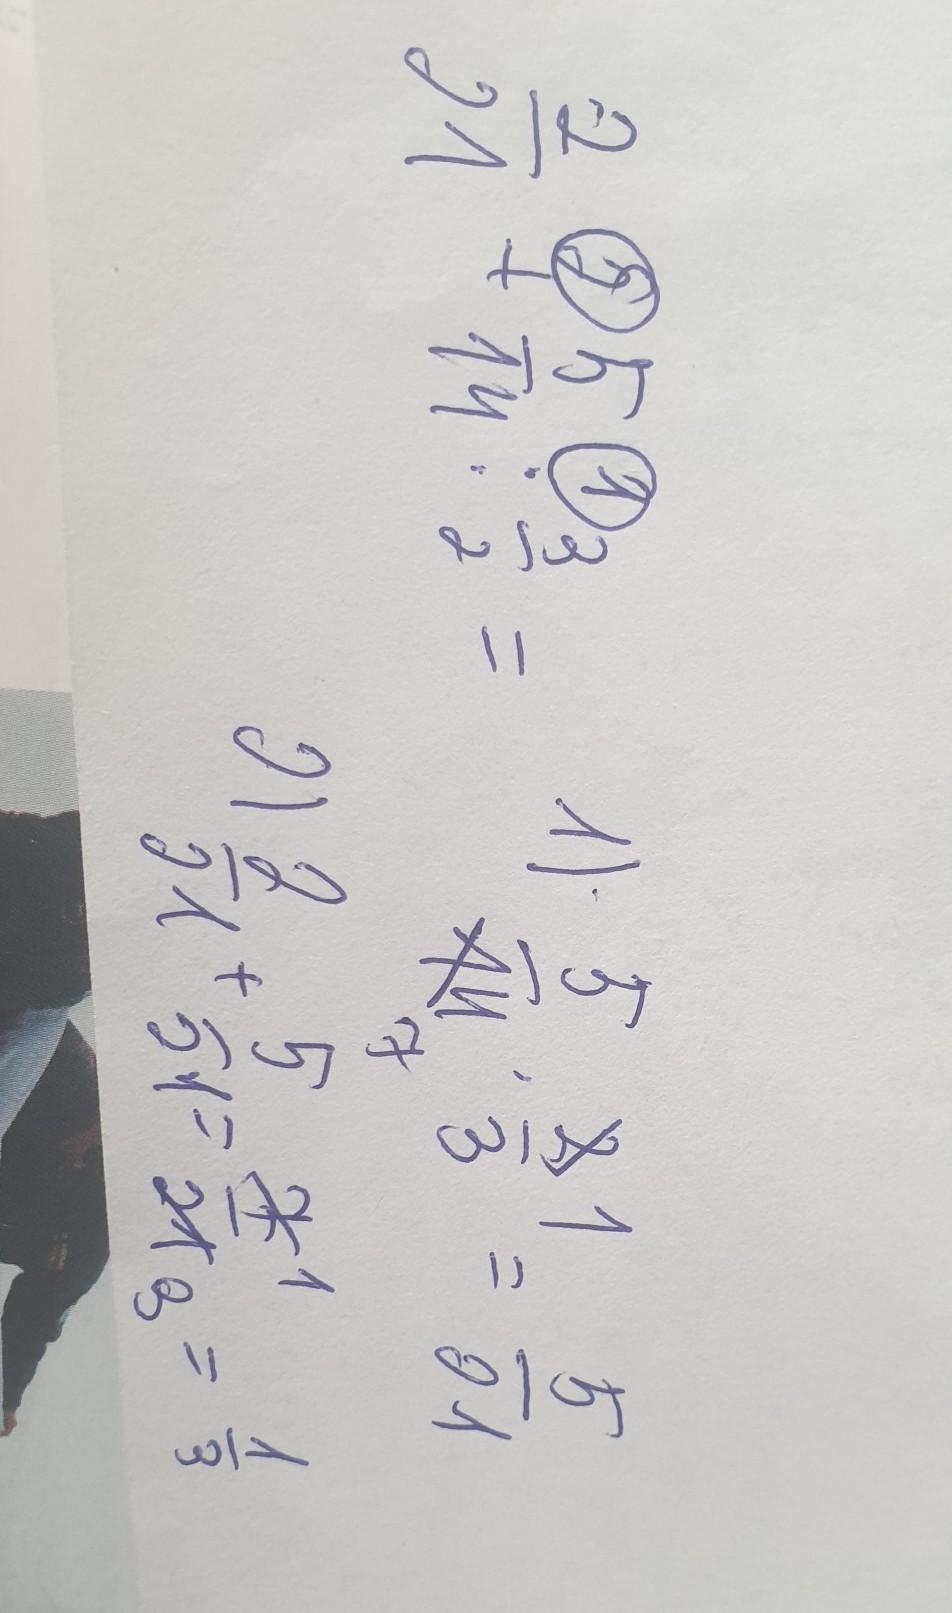 2/21 + ② 5/14 : ① 3/2 =
1) 5/14 7 · 2/3 1 = 5/21
2) 2/21 + 5/21 = 7/21 1 3 = 1/3